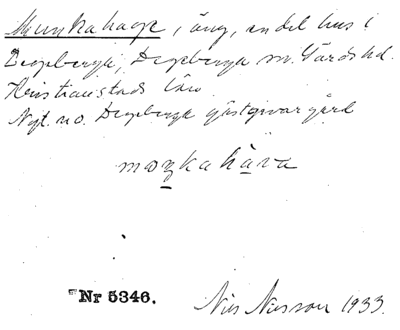 Munkahage, äng, en del hus i
Degeberga, Degeberga sn. Gärds hd.
Kristianstads län.
no. Degeberga gästgivargård
Nr 5346.
Nils Nilsson 1933.